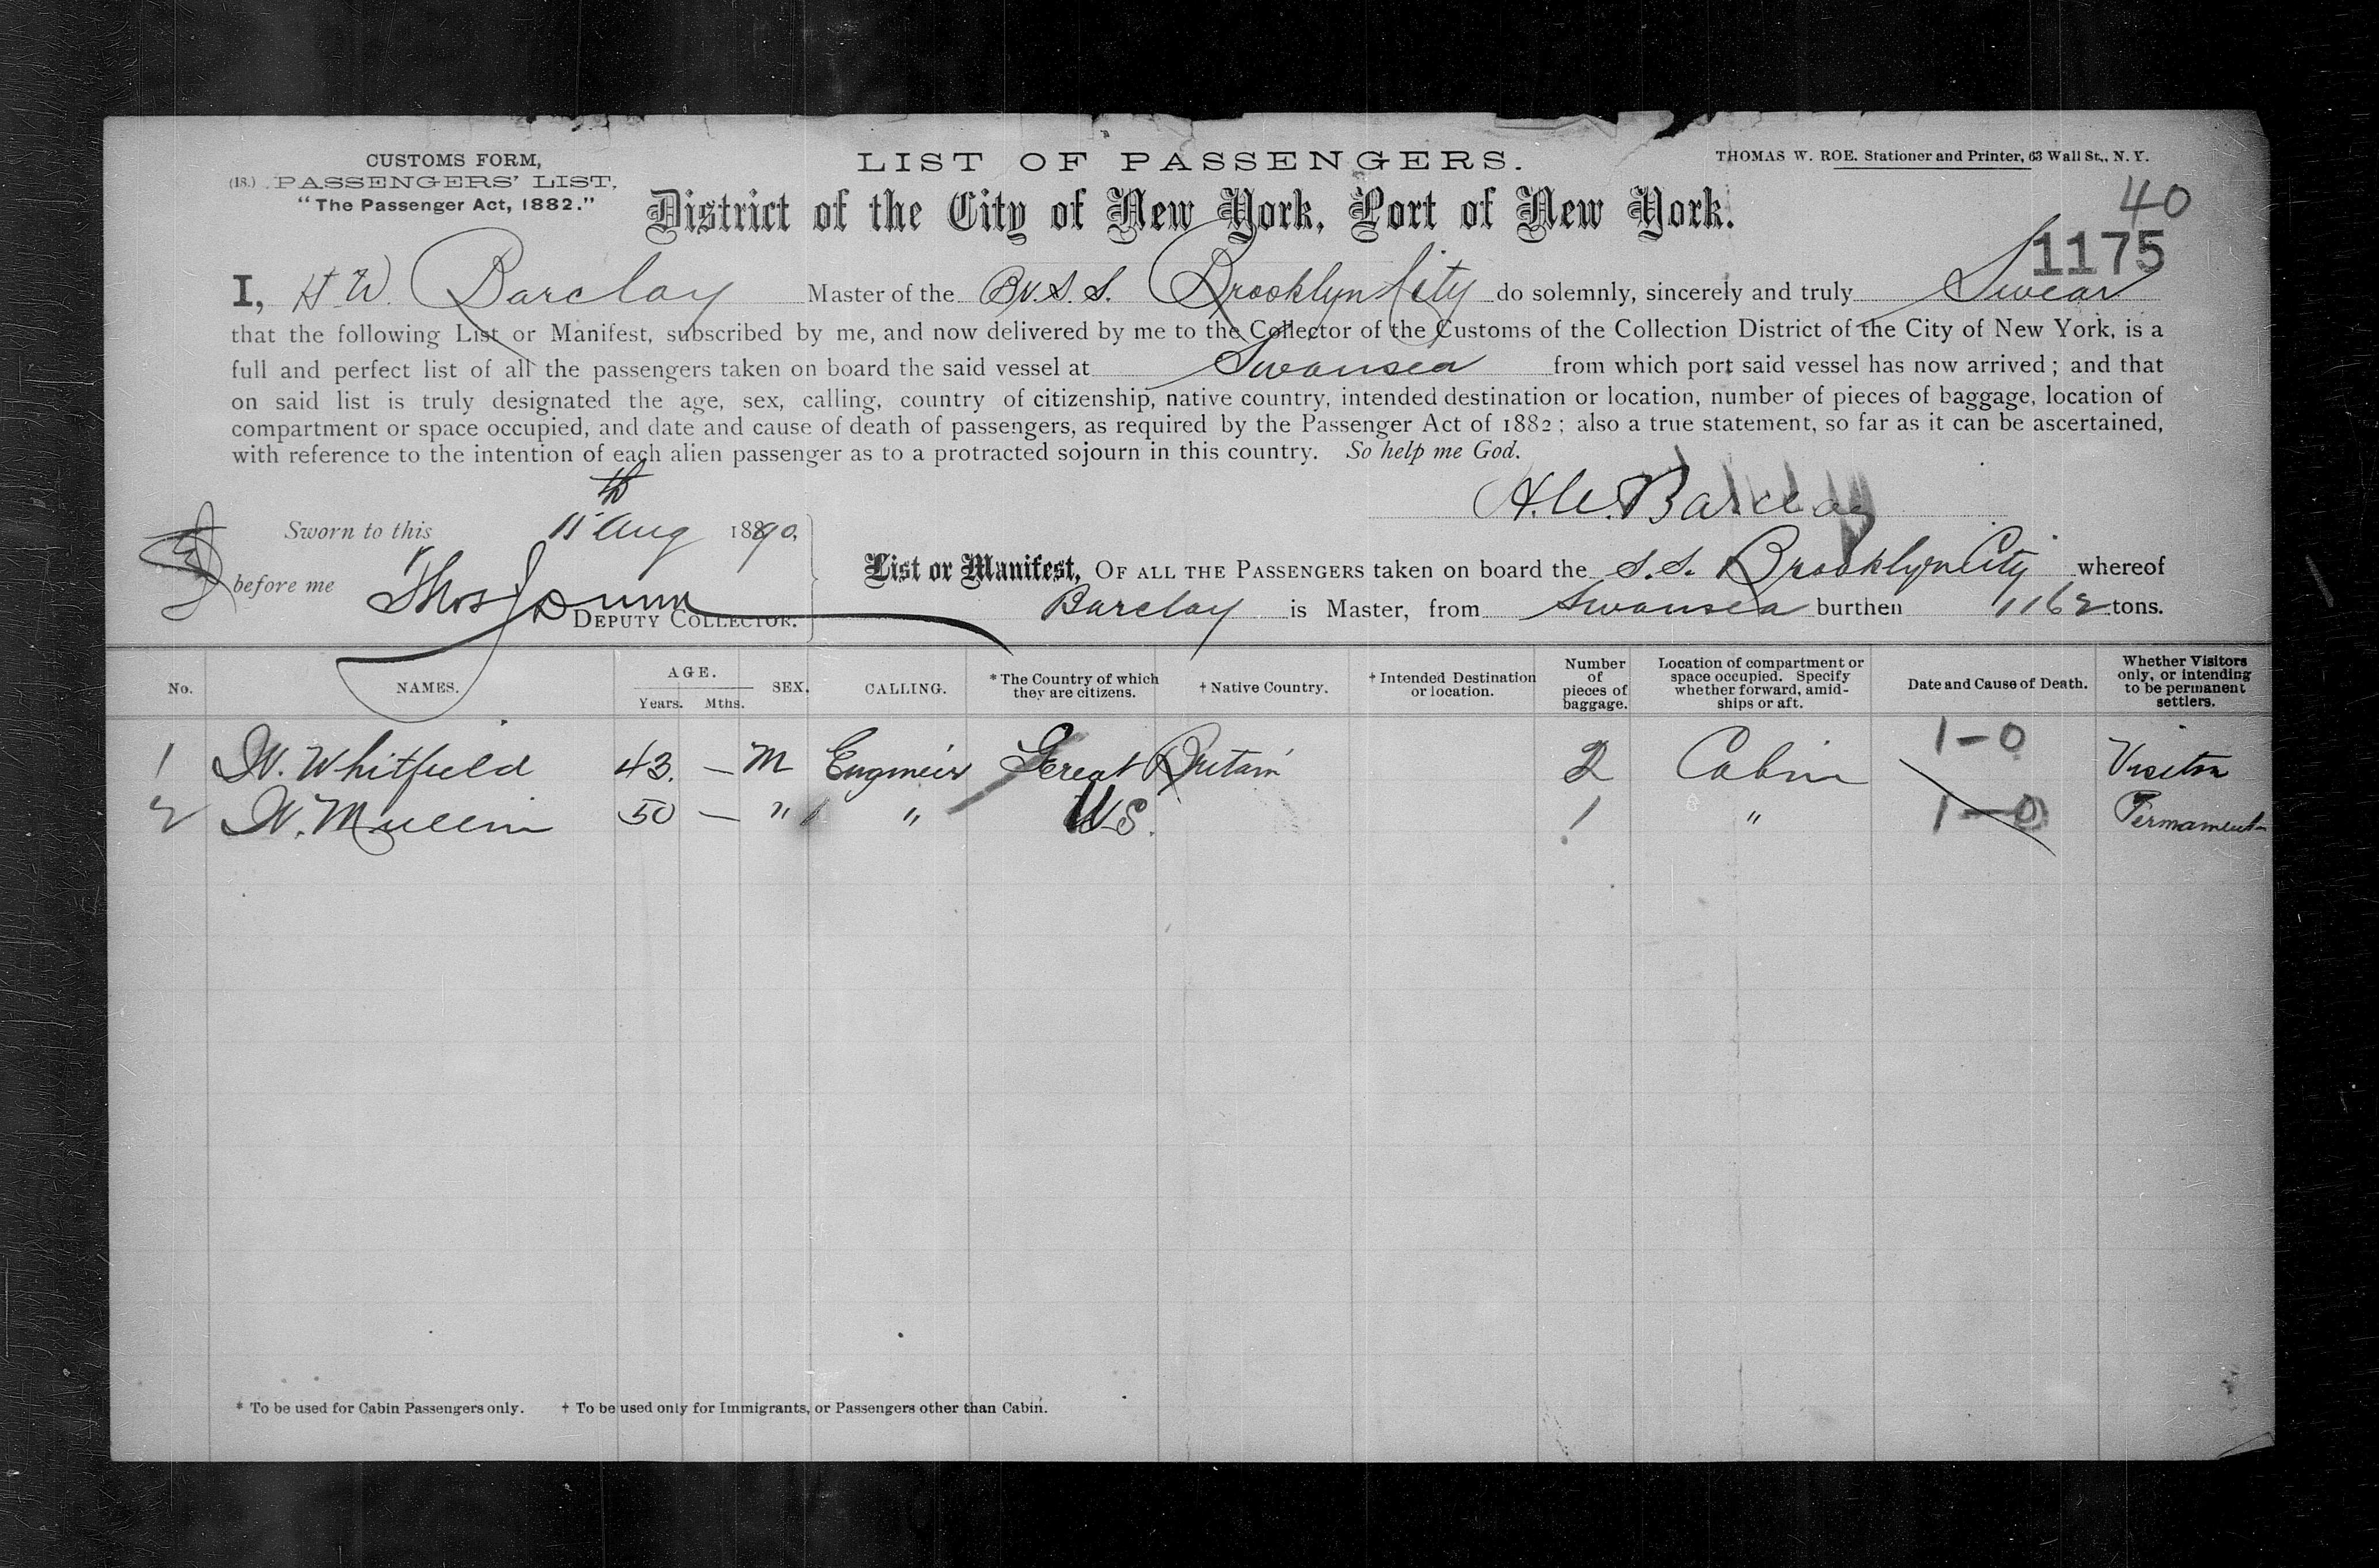 CUSTOMS FORM,
(18.) PASSENGERS' LIST,
"The Passenger Act, 1882."
LIST OF PASSENGERS.
THOMAS W. ROE. Stationer and Printer, 63 Wall St., N. Y.
District of the City of New York, Port of New York.
40
1175
I, H. W. Barclay Master of the Br. S. S. Brooklyn City do solemnly, sincerely and truly Swear
that the following List or Manifest, subscribed by me, and now delivered by me to the Collector of the Customs of the Collection District of the City of New York, is a
full and perfect list of all the passengers taken on board the said vessel at Swansea from which port said vessel has now arrived; and that
on said list is truly designated the age, sex, calling, country of citizenship, native country, intended destination or location, number of pieces of baggage, location of
compartment or space occupied, and date and cause of death of passengers, as required by the Passenger Act of 1882; also a true statement, so far as it can be ascertained,
with reference to the intention of each alien passenger as to a protracted sojourn in this country. So help me God.
H. W. Barclay
Sworn to this 11th Aug 1890,
before me Thos Dunn
DEPUTY COLLECTOR.
List or Manifest, OF ALL THE PASSENGERS taken on board the S. S. Brooklyn City whereof
Barclay is Master, from Swansea burthen 1162 tons.
No. NAMES. AGE. Years. Mths. SEX. CALLING. * The Country of which they are citizens. † Native Country. † Intended Destination or location. Number of pieces of baggage. Location of compartment or space occupied. Specify whether forward, amidships or aft. Date and Cause of Death. Whether Visitors only, or intending to be permanent settlers.
1 W. Whitfield 43. — M Engineer Great Britain 2 Cabin 1-0 Visitor
2 W. Mullin 50 — " " U.S. 1 " 1-0 Permament
* To be used for Cabin Passengers only. † To be used only for Immigrants, or Passengers other than Cabin.